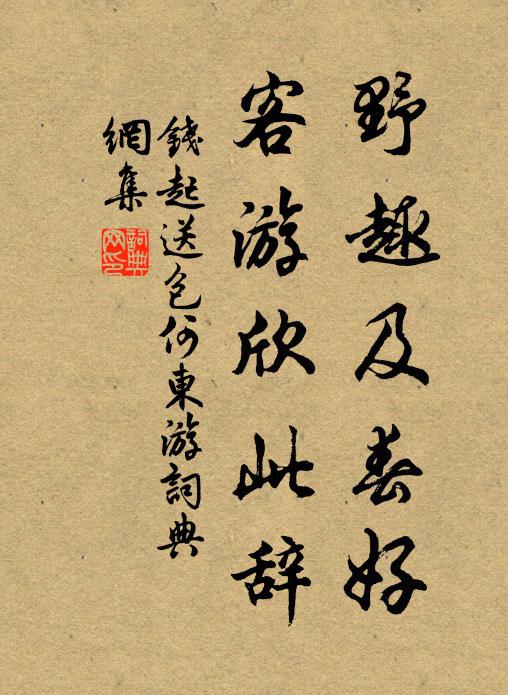 野趣及春好
客游欣此辞
錢起送包何東游詞典
網集
詞典網印